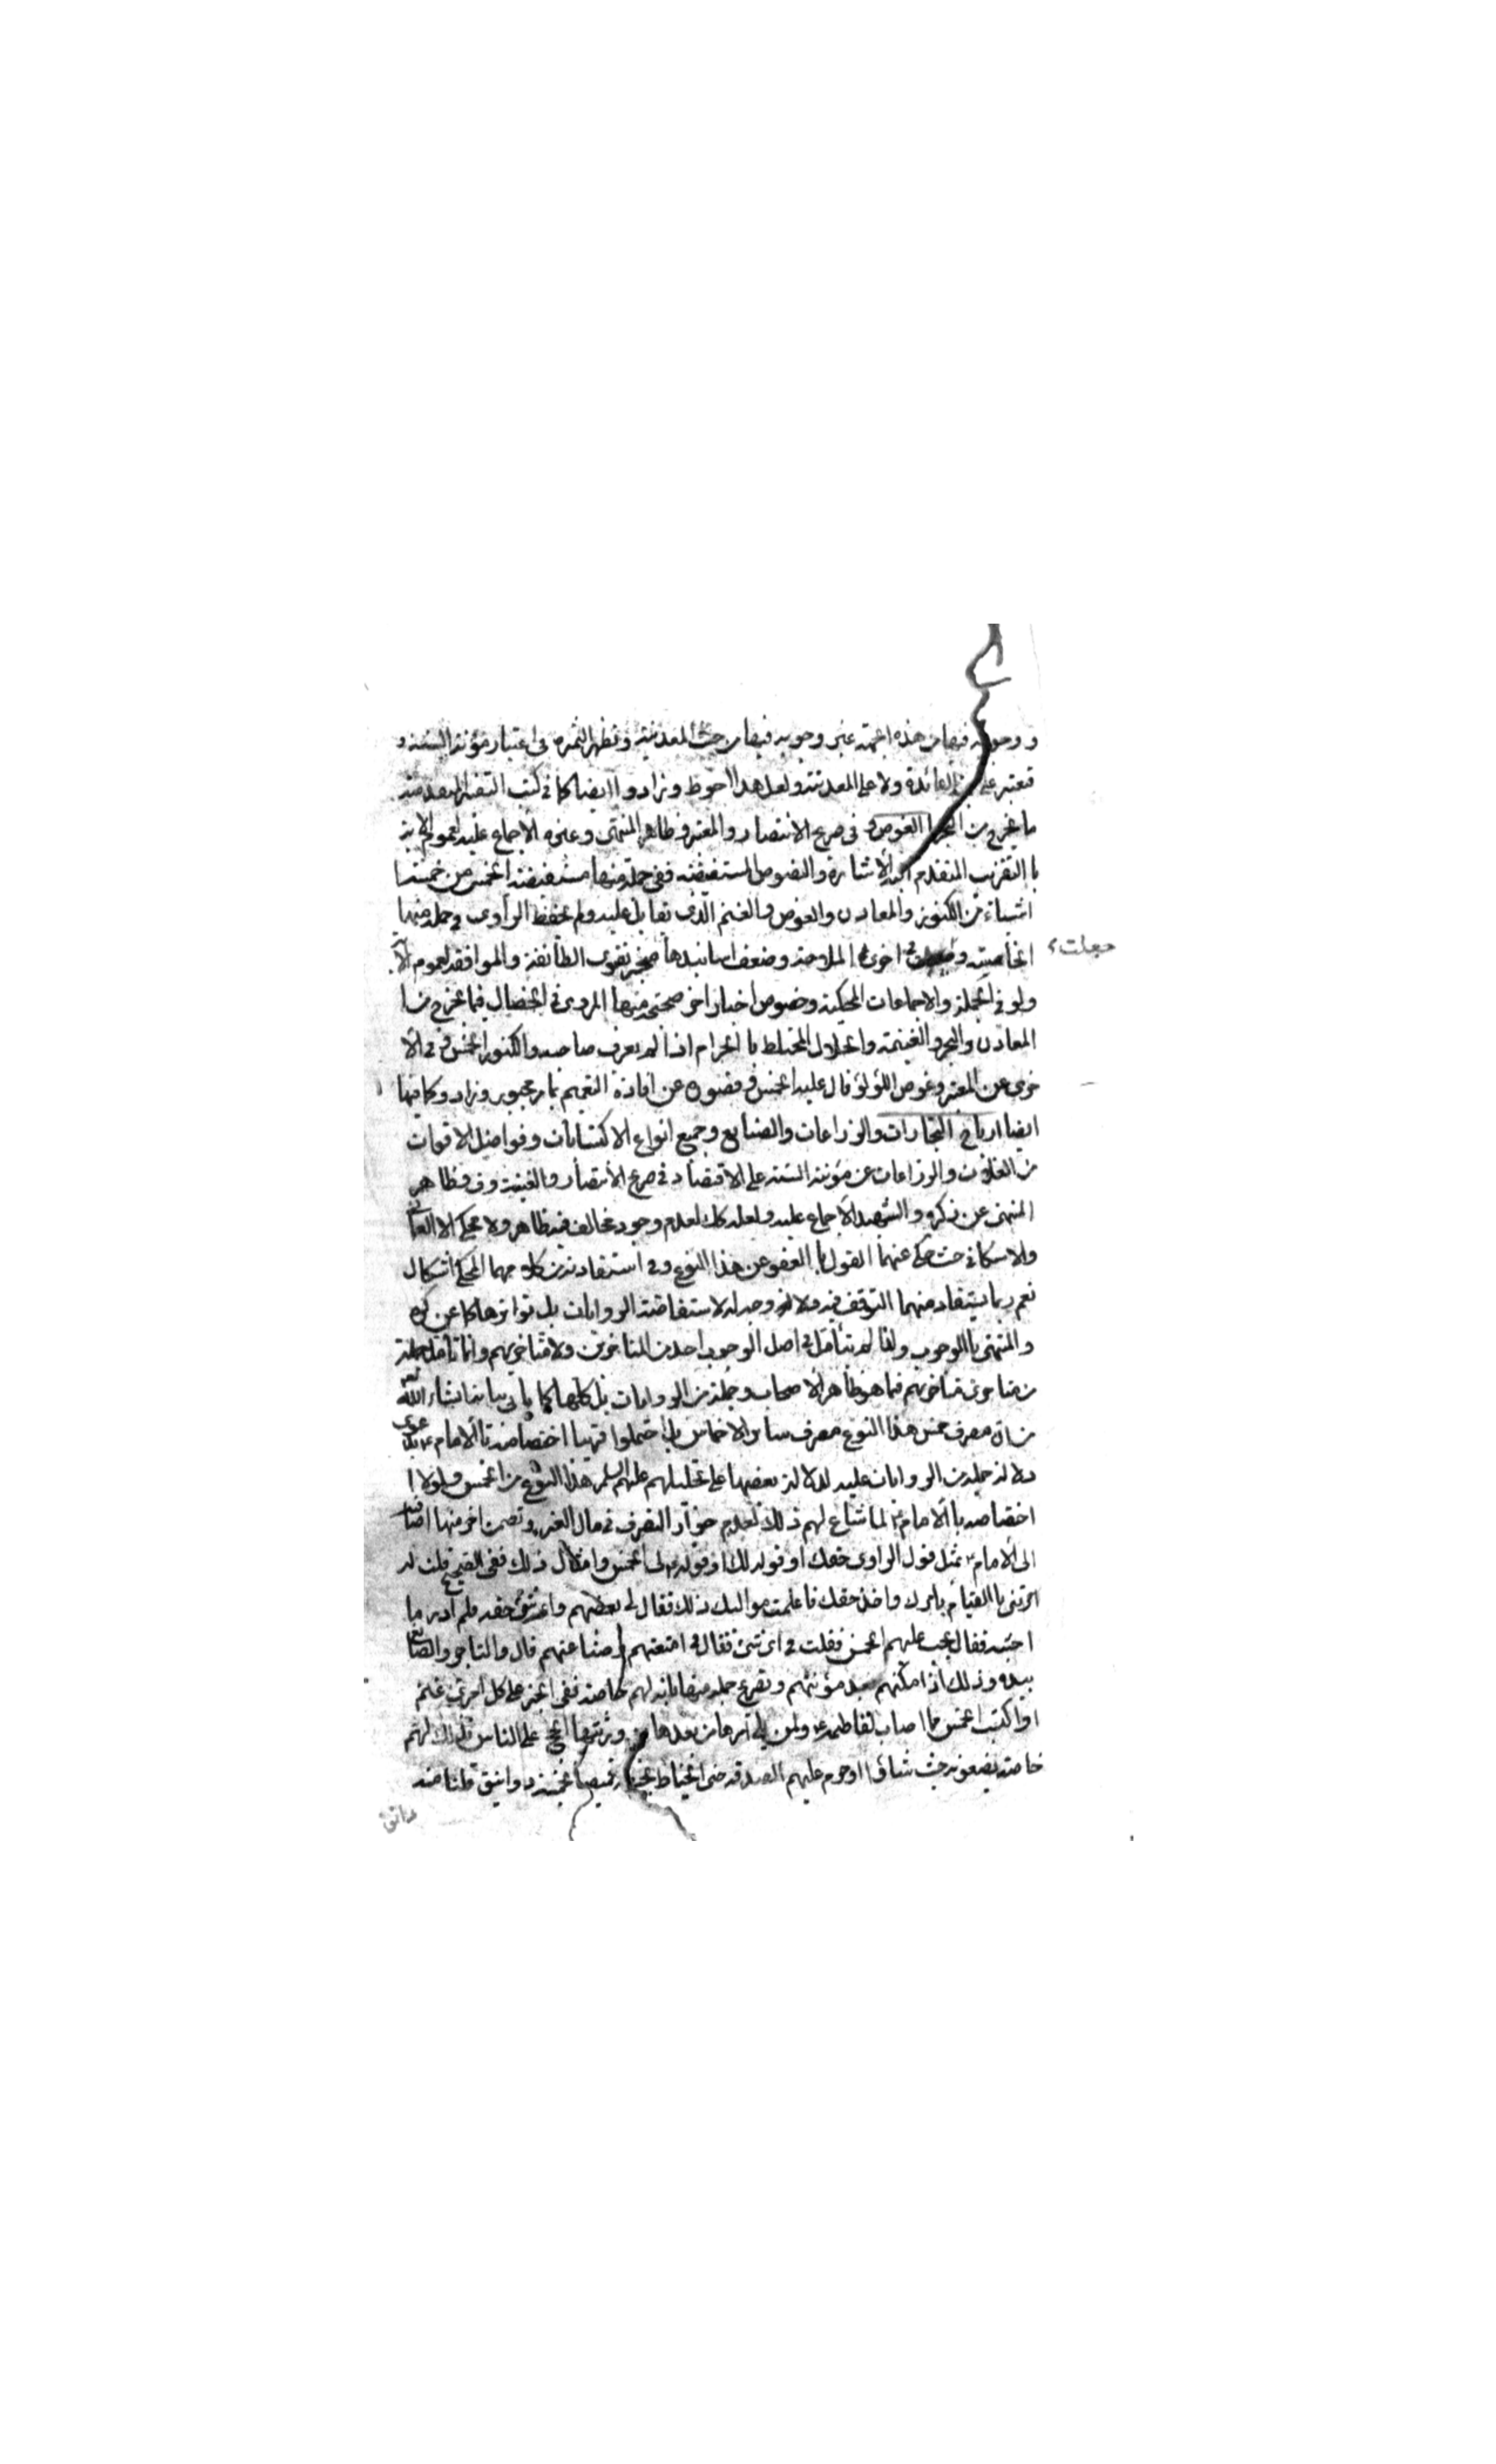 ووجوبه فيها من هذه الجهة غير وجوبه فيها من حيث المعدنية وتظهر الثمرة في اعتبار مؤنة السنة و
فتعتبر على الفائدة ولا على المعدنية ولعل هذا احوط وزادوا ايضا كما في كتب
ما يخرج من البحر بالغوص وفي صريح الانتصار والمعتبر وظاهر المنتهى وغيره الاجماع عليه لعموم الآية
بالتقريب المتقدم اليه الاشارة والنصوص المستفيضة ففي جملة منها مستفيضة الخمس من خمسة ا
اشياء من الكنوز والمعادن والغوص والمغنم الذي يقاتل عليه ولم يحفظ الراوي وجملة منها
الخامسة وفي اخرى الملاحة وضعف اسانيدها منجبر بفتوى الطائفة والموافقة لعموم الآ
جعلت
ولو في الجملة والاجماعات المحكية وخصوص اخبار اخر صحيحة منها المروي في الخصال فيما يخرج من ا
المعادن والبحر والغنيمة والحلال المختلط بالحرام اذا لم يعرف صاحبه والكنوز الخمس وفي الا
خرى عن العنبر وغوص اللؤلؤ قال عليه الخمس وقصوره عن افادة التعميم بما مر مجبور وزادوكا فيها
ايضا ارباح التجارات والزراعات والصنايع وجميع انواع الاكتسابات وفواضل الاقوات
من الغلات والزراعات عن مؤنة السنة على الاقتصاد في صريح الانتصار والغنية وف وظاهر
المنتهى عن ذكره والشهيد الاجماع عليه ولعله كك لعدم وجود مخالف فيه ظاهر ولا محكي الا العماني
والاسكافي حيث حكي عنهما القول بالعفو عن هذا النوع وفي استفادته من كلامهما المحكي اشكال
نعم ربما يستفاد منهما التوقف فيه ولا وجه له لاستفاضة الروايات بل تواترها كما عن كره
والمنتهى بالوجوب ولذا لم يتأمل في اصل الوجوب احد من المتاخرين ولا متاخريهم وانما تأمل جملة
من متاخري متاخريهم فيما هو ظاهر الاصحاب وجملة من الروايات بل كلها كما ياتي بيانه انشاء الله تعالى
من ان مصرف خمس هذا النوع مصرف ساير الاخماس بل احتملوا قريبا اختصاصه بالامام ع بدعوى
دلالة جملة من الروايات عليه لدلالة بعضها على تحليلهم عليهم السلم هذا النوع من الخمس ولولا ا
اختصاصه بالامام لما ساغ لهم ذلك لعدم جواز التصرف في مال الغير وتضمن اخر منها اضافته
الى الامام ع بمثل قول الراوي حقك او قوله لك او قوله ع لي الخمس وامثال ذلك ففي الصحيح قلت له
امرتني بالقيام بامرك واخذ حقك فاعلمت مواليك ذلك فقال لي بعضهم واي شيء حقه فلم ادر ما
اجيبه فقال يجب عليهم الخمس فقلت في اي شيء فقال في امتعتهم وضياعهم قال والتاجر والصانع
بيده وذلك اذا امكنهم بعد مؤنتهم وتصريح جملة منها بانه لهم خاصة ففي الخبر على كل امرئ غنم
او اكتسب الخمس مما اصاب لفاطمة ع ولمن يلي امرها من بعدها من ورثتها الحجج على الناس فذلك لهم
خاصة يضعونه حيث شاؤا اذ حرم عليهم الصدقة حتى الخياط يخيط قميصا بخمسة دوانيق فلنا منه
دانق